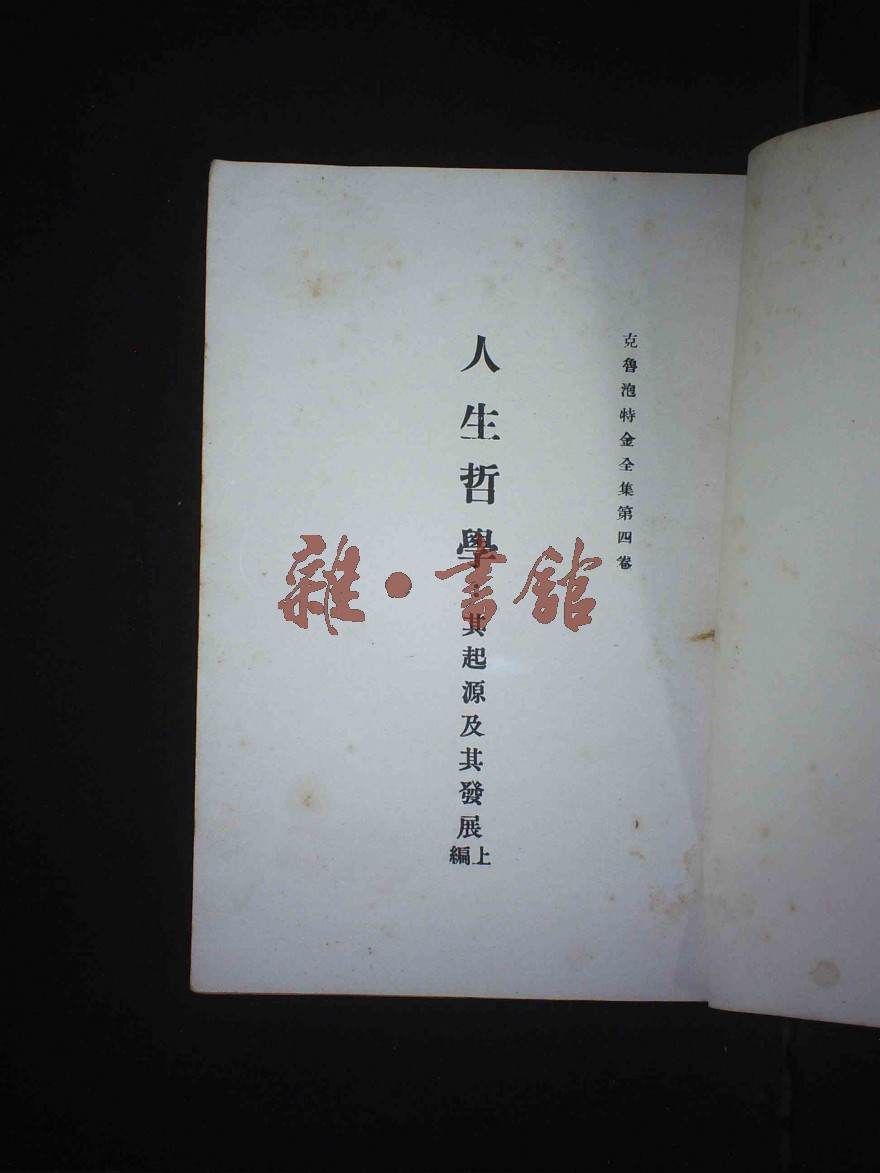 克魯泡特金全集第四卷
人生哲學：其起源及其發展上編
雜·書館